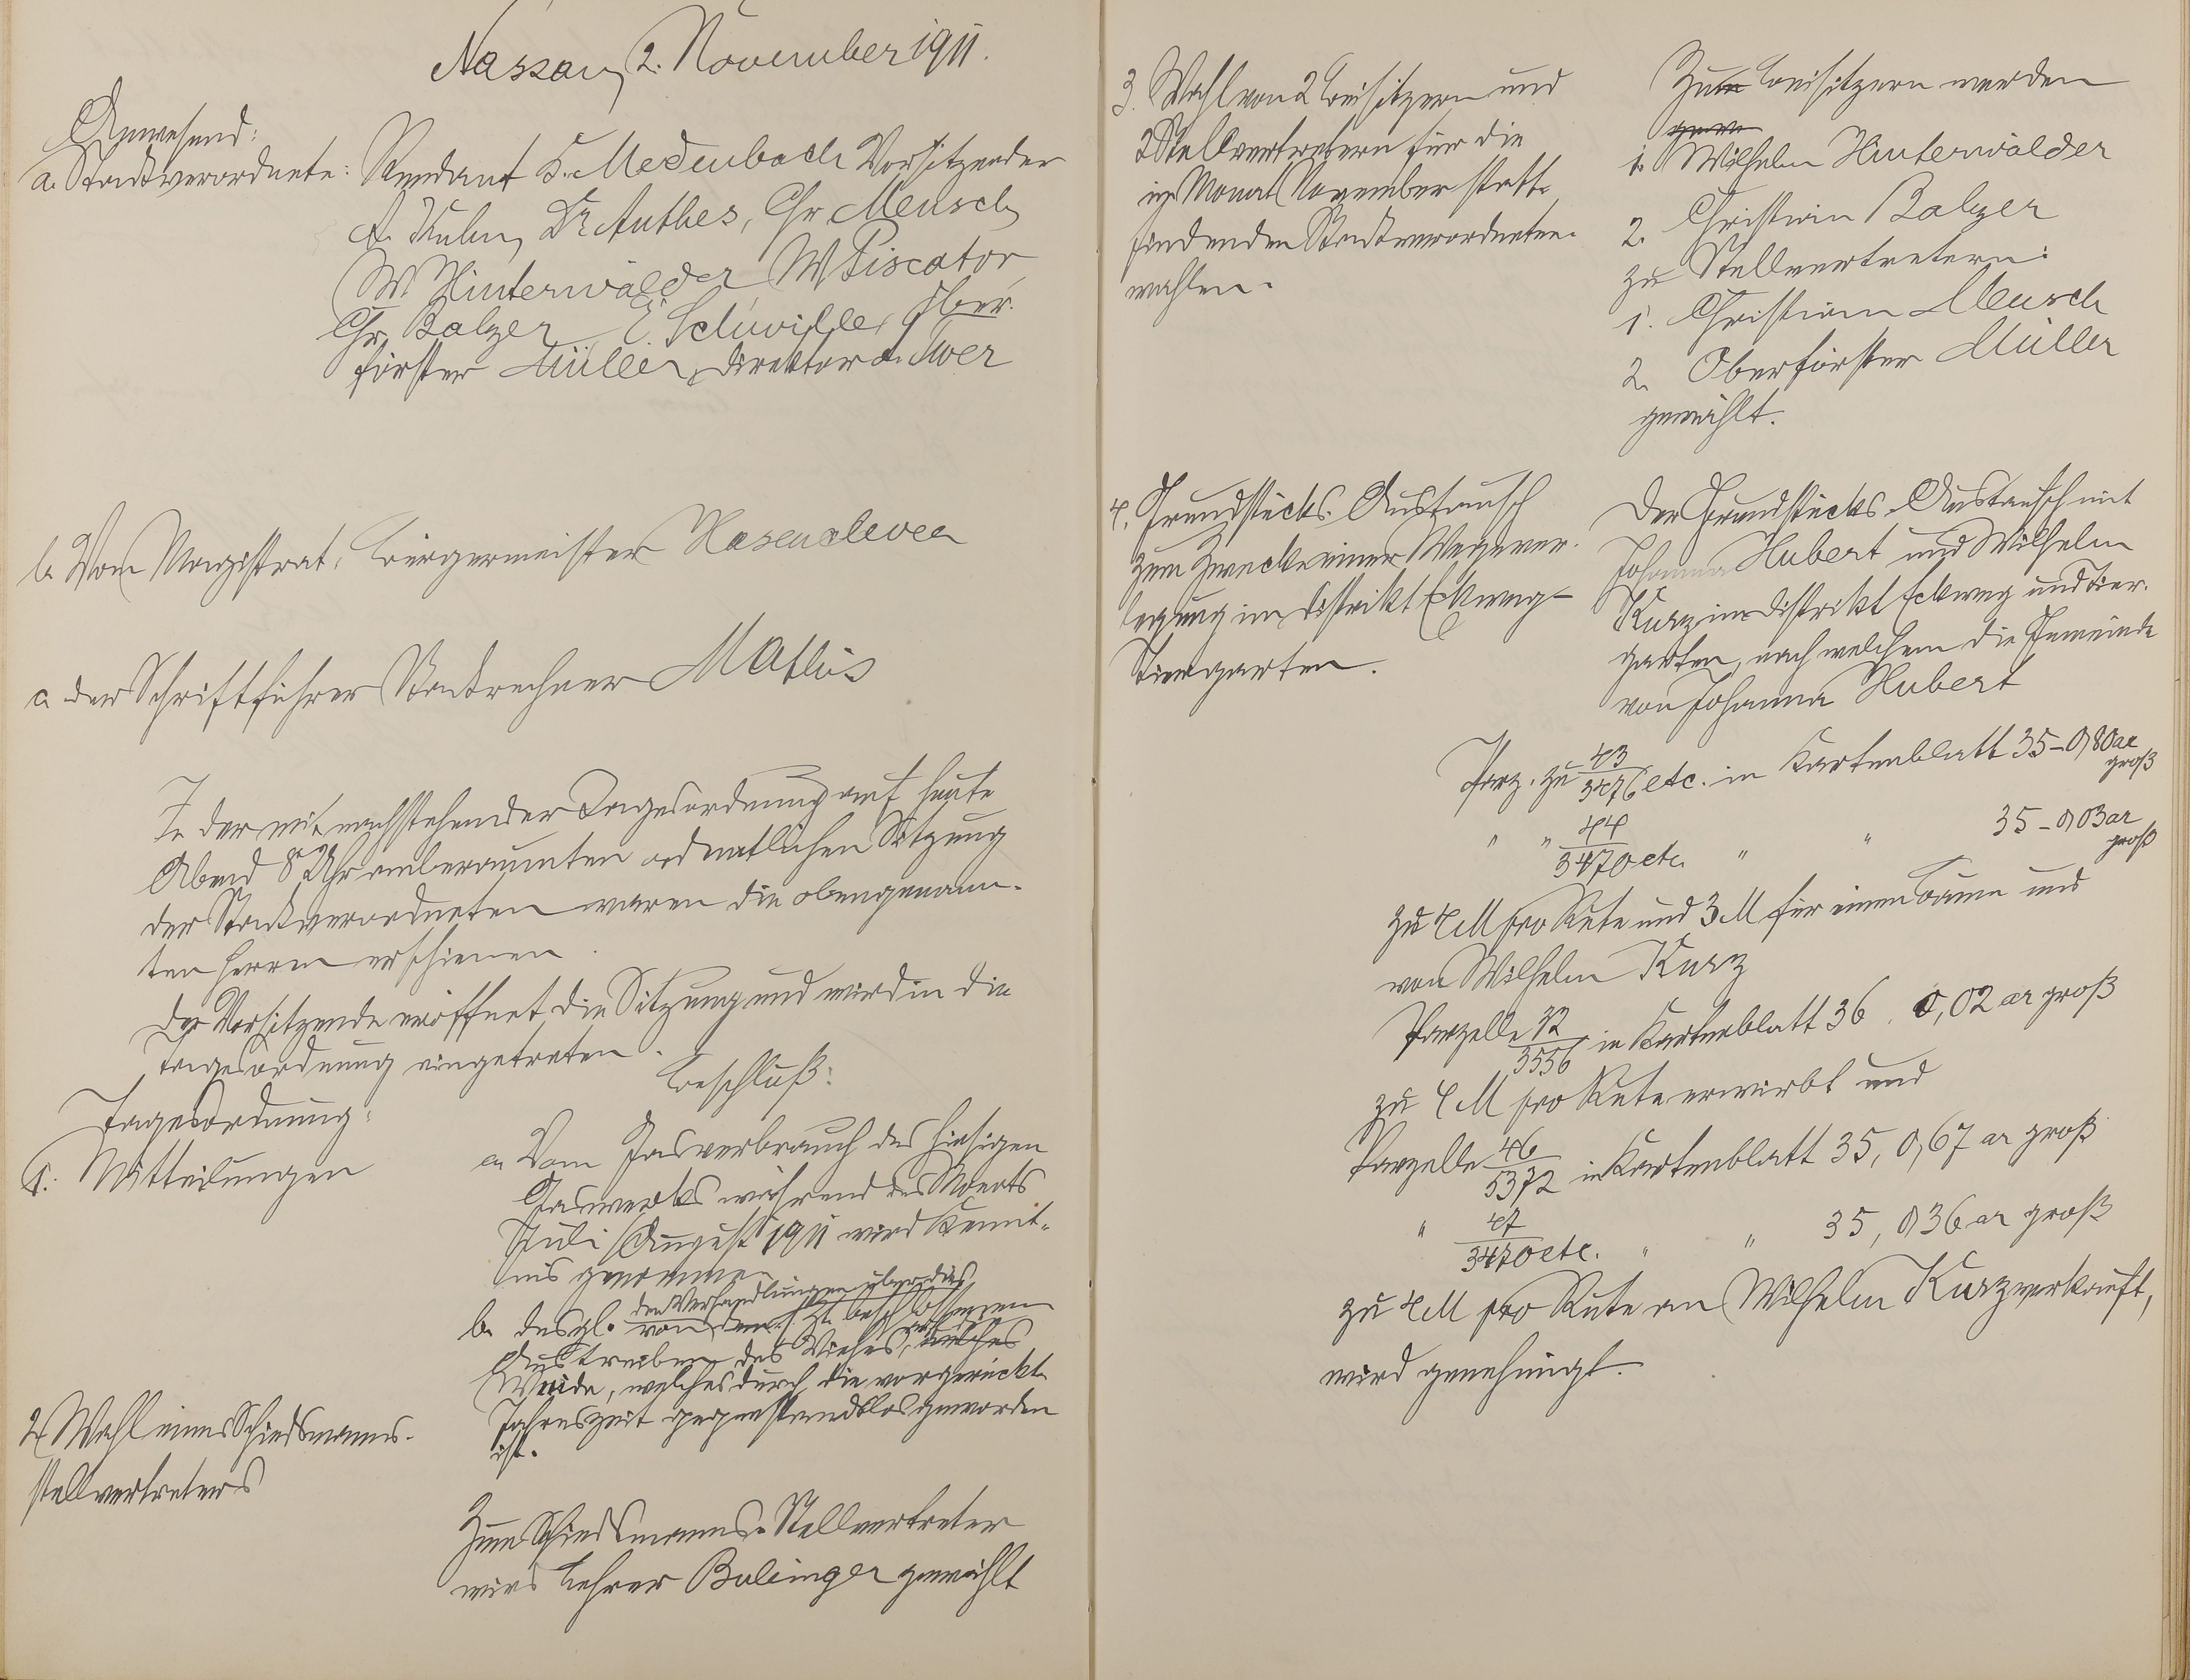 Nassau, 2. November 1911.
Anwesend:
a. Stadtverordnete: Rendant F. Medenbach Vorsitzender
A. Kuhn, Dr Anthes, Chr Mensch,
W. Hinterwälder W Piscator
Chr. Balzer E. Schwille, Ober-
förster Müller, Direktor A. Twer
b. Vom Magistrat, Bürgermeister Hasenclever
c. der Schriftführer Stadtrechner Matlus
In der mit nachstehender Tagesordnung auf heute
Abend 8 Uhr anberaumten ordentlichen Sitzung
der Stadtverordneten waren die obengenann-
ten Herren erschienen.
Der Vorsitzende eröffnet die Sitzung und wird in die
Tagesordnung eingetreten.
Beschluß:
Tagesordnung:
1. Mitteilungen
a. Vom Gasverbrauch des hiesigen
Gaswerks während des Monats
Juli/August 1911 wird Kennt-
nis genommen
den Verhandlungen über das
b. desgl. von dem s. Zt. beschlossenen
Austreiben des Viehes, welches auf die
Weide, welches durch die vorgerückte
Jahreszeit gegenstandslos geworden
ist.
2. Wahl eines Schiedsmanns-
stellvertreters
Zum Schiedsmanns-Stellvertreter
wird Lehrer Bulinger gewählt
3. Wahl von 2 Beisitzern und
2 Stellvertretern für die
im Monat November statt-
findenden Stadtverordneten-
wahlen.
Zum Beisitzern werden
1. Wilhelm Hinterwälder
2. Christian Balzer
zu Stellvertretern:
1. Christian Mensch
2. Oberförster Müller
gewählt.
4. Grundstücks-Austausch
zum Zwecke einer Wegever-
legung im Distrikt Eckweg-
Tiergarten.
Der Grundstücks-Austausch mit
Johanna Hubert und Wilhelm
Kurz im Distrikt Eckweg und Tier-
garten, nach welchem die Gemeinde
von Johanna Hubert
Parz. zu 43/3476 etc. in Kartenblatt 35 - 0,80 ar groß
" " 44/3470 etc. " " 35 - 0,03 ar groß
zu 4 M pro Rute und 3 M für einen Baum und
von Wilhelm Kurz
Parzelle 32/3556 in Kartenblatt 36. 0,02 ar groß
zu 4 M pro Rute erwirbt und
Parzelle 46/5372 in Kartenblatt 35, 0,67 ar groß
" 47/3470 etc. " " 35, 0,36 ar groß
zu 4 M pro Rute an Wilhelm Kurz verkauft,
wird genehmigt.